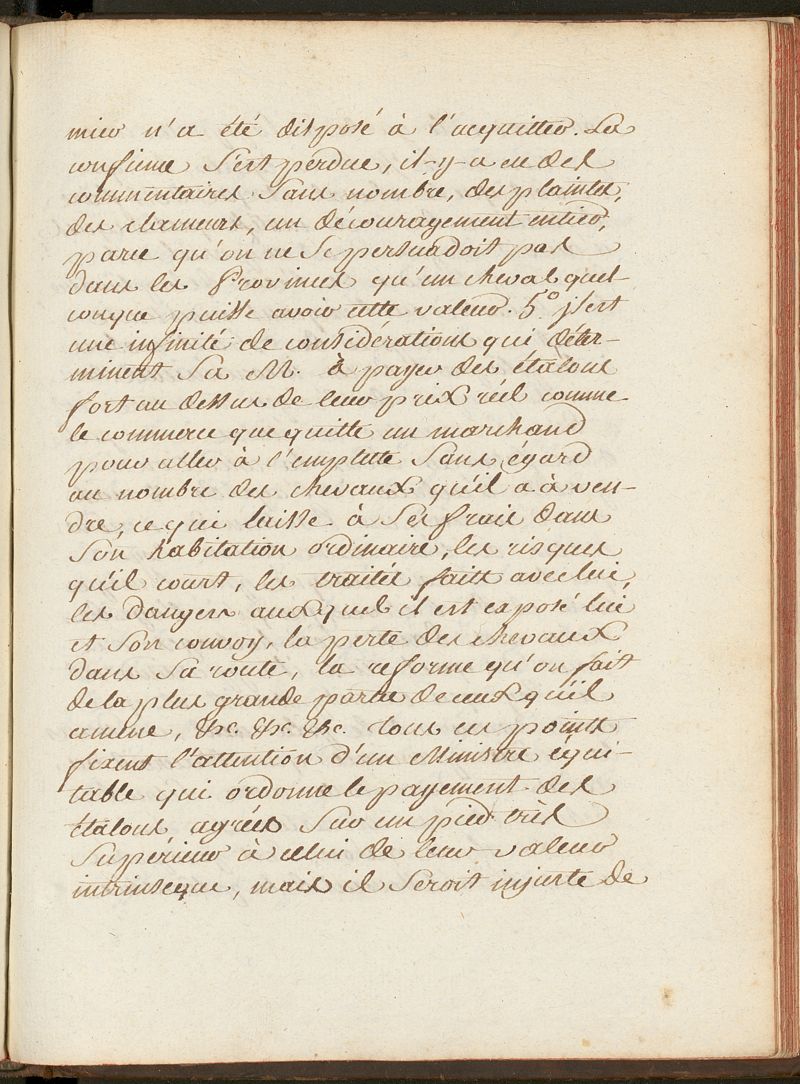 mier n'a été disposé à l'acquitter. La
confience s'est perdue, il-y-a eu des
commentaires sans nombre, des plaintes,
des clameurs, un découragement entier,
parce qu'on ne se persuadoit pas
dans les Provinces qu'un cheval quel
conque puisse avoir cette valeur. 5.° J'est
une infinité de considérations qui déter-
minent Sa M. à payer des étalons
fort au dessus de leur prix réel comme
le commerce que quitte un marchand
pour aller à l'emplette sans égard
au nombre des chevaux qu'il a à ven-
dre, ce qui laisse à ses frais dans
son habitation ordinaire, les risques
qu'il court, les traités faits avec lui,
les dangers auxquels il est exposé lui
et son convoy, la perte des chevaux
dans sa route, la reforme qu'on fait
de la plus grande partie de ceux qu'il
amene, &c. &c. &c. tous ces points
fixent l'attention d'un Ministre équi-
table qui ordonne le payement des
étalons agréés sur un pied très
supérieur à celui de leur valeur
intrinseque, mais il seroit injuste de